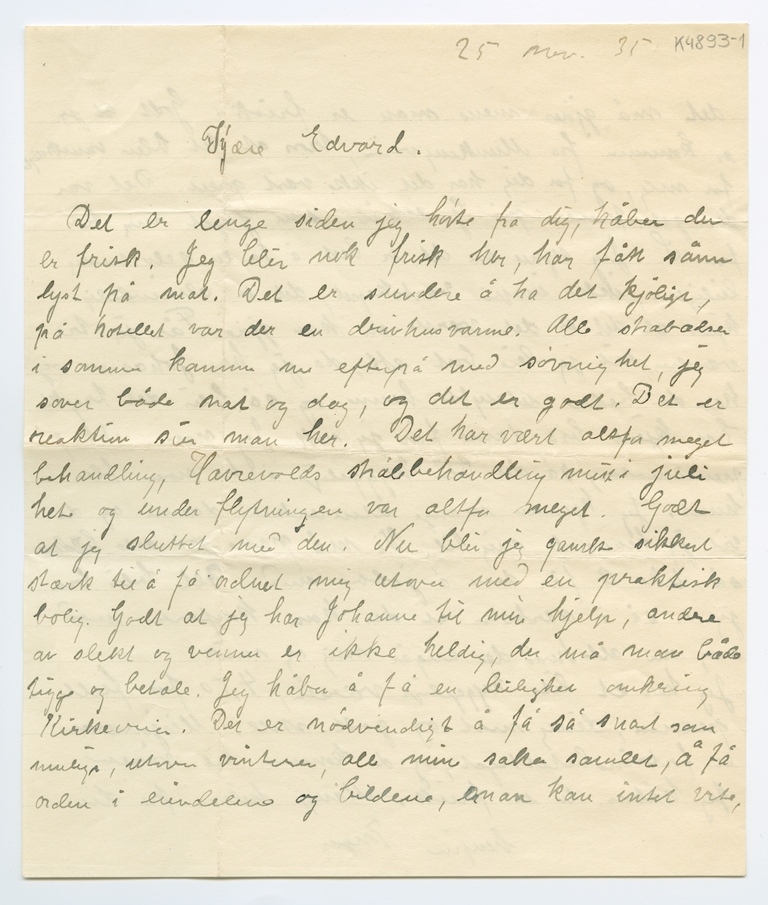 25 nov. 35 K4893-1
Kjære Edvard.
Det er lenge siden jeg hørte fra dig, håber du
er frisk. Jeg blir nok frisk her, har fått sånn
lyst på mat. Det er sundere å ha det kjøligt,
på hotellet var der en drivhusvarme. Alle strabadser
i sommer kommer nu efterpå med søvnighet, jeg
sover både nat og dag, og det er godt. Det er
reaktion sier man her. Det har vært altfor meget
behandling, Havrevolds strålebehandling midt i juli
hete og under flytningen var altfor meget. Godt
at jeg sluttet med den. Nu blir jeg ganske sikkert
stærk til å få ordnet mig utover med en praktisk
bolig. Godt at jeg har Johanne til min hjelp, andre
av slekt og venner er ikke heldig, der må man både
tigge og betale. Jeg håber å få en leilighet omkring
Kirkeveien. Det er nødvendigt å få så snart som
muligt, utover vinteren, alle mine saker samlet, å få
orden i eiendelene og bildene, man kan intet vite,